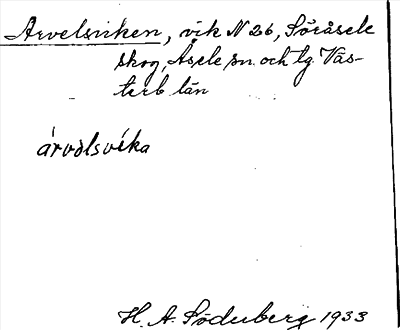 Arvelsviken, vik N 26, Söråsele
skog, Åsele sn. och lg. Väs-
terb. län
árvəlsvíka
H. A. Söderberg 1933